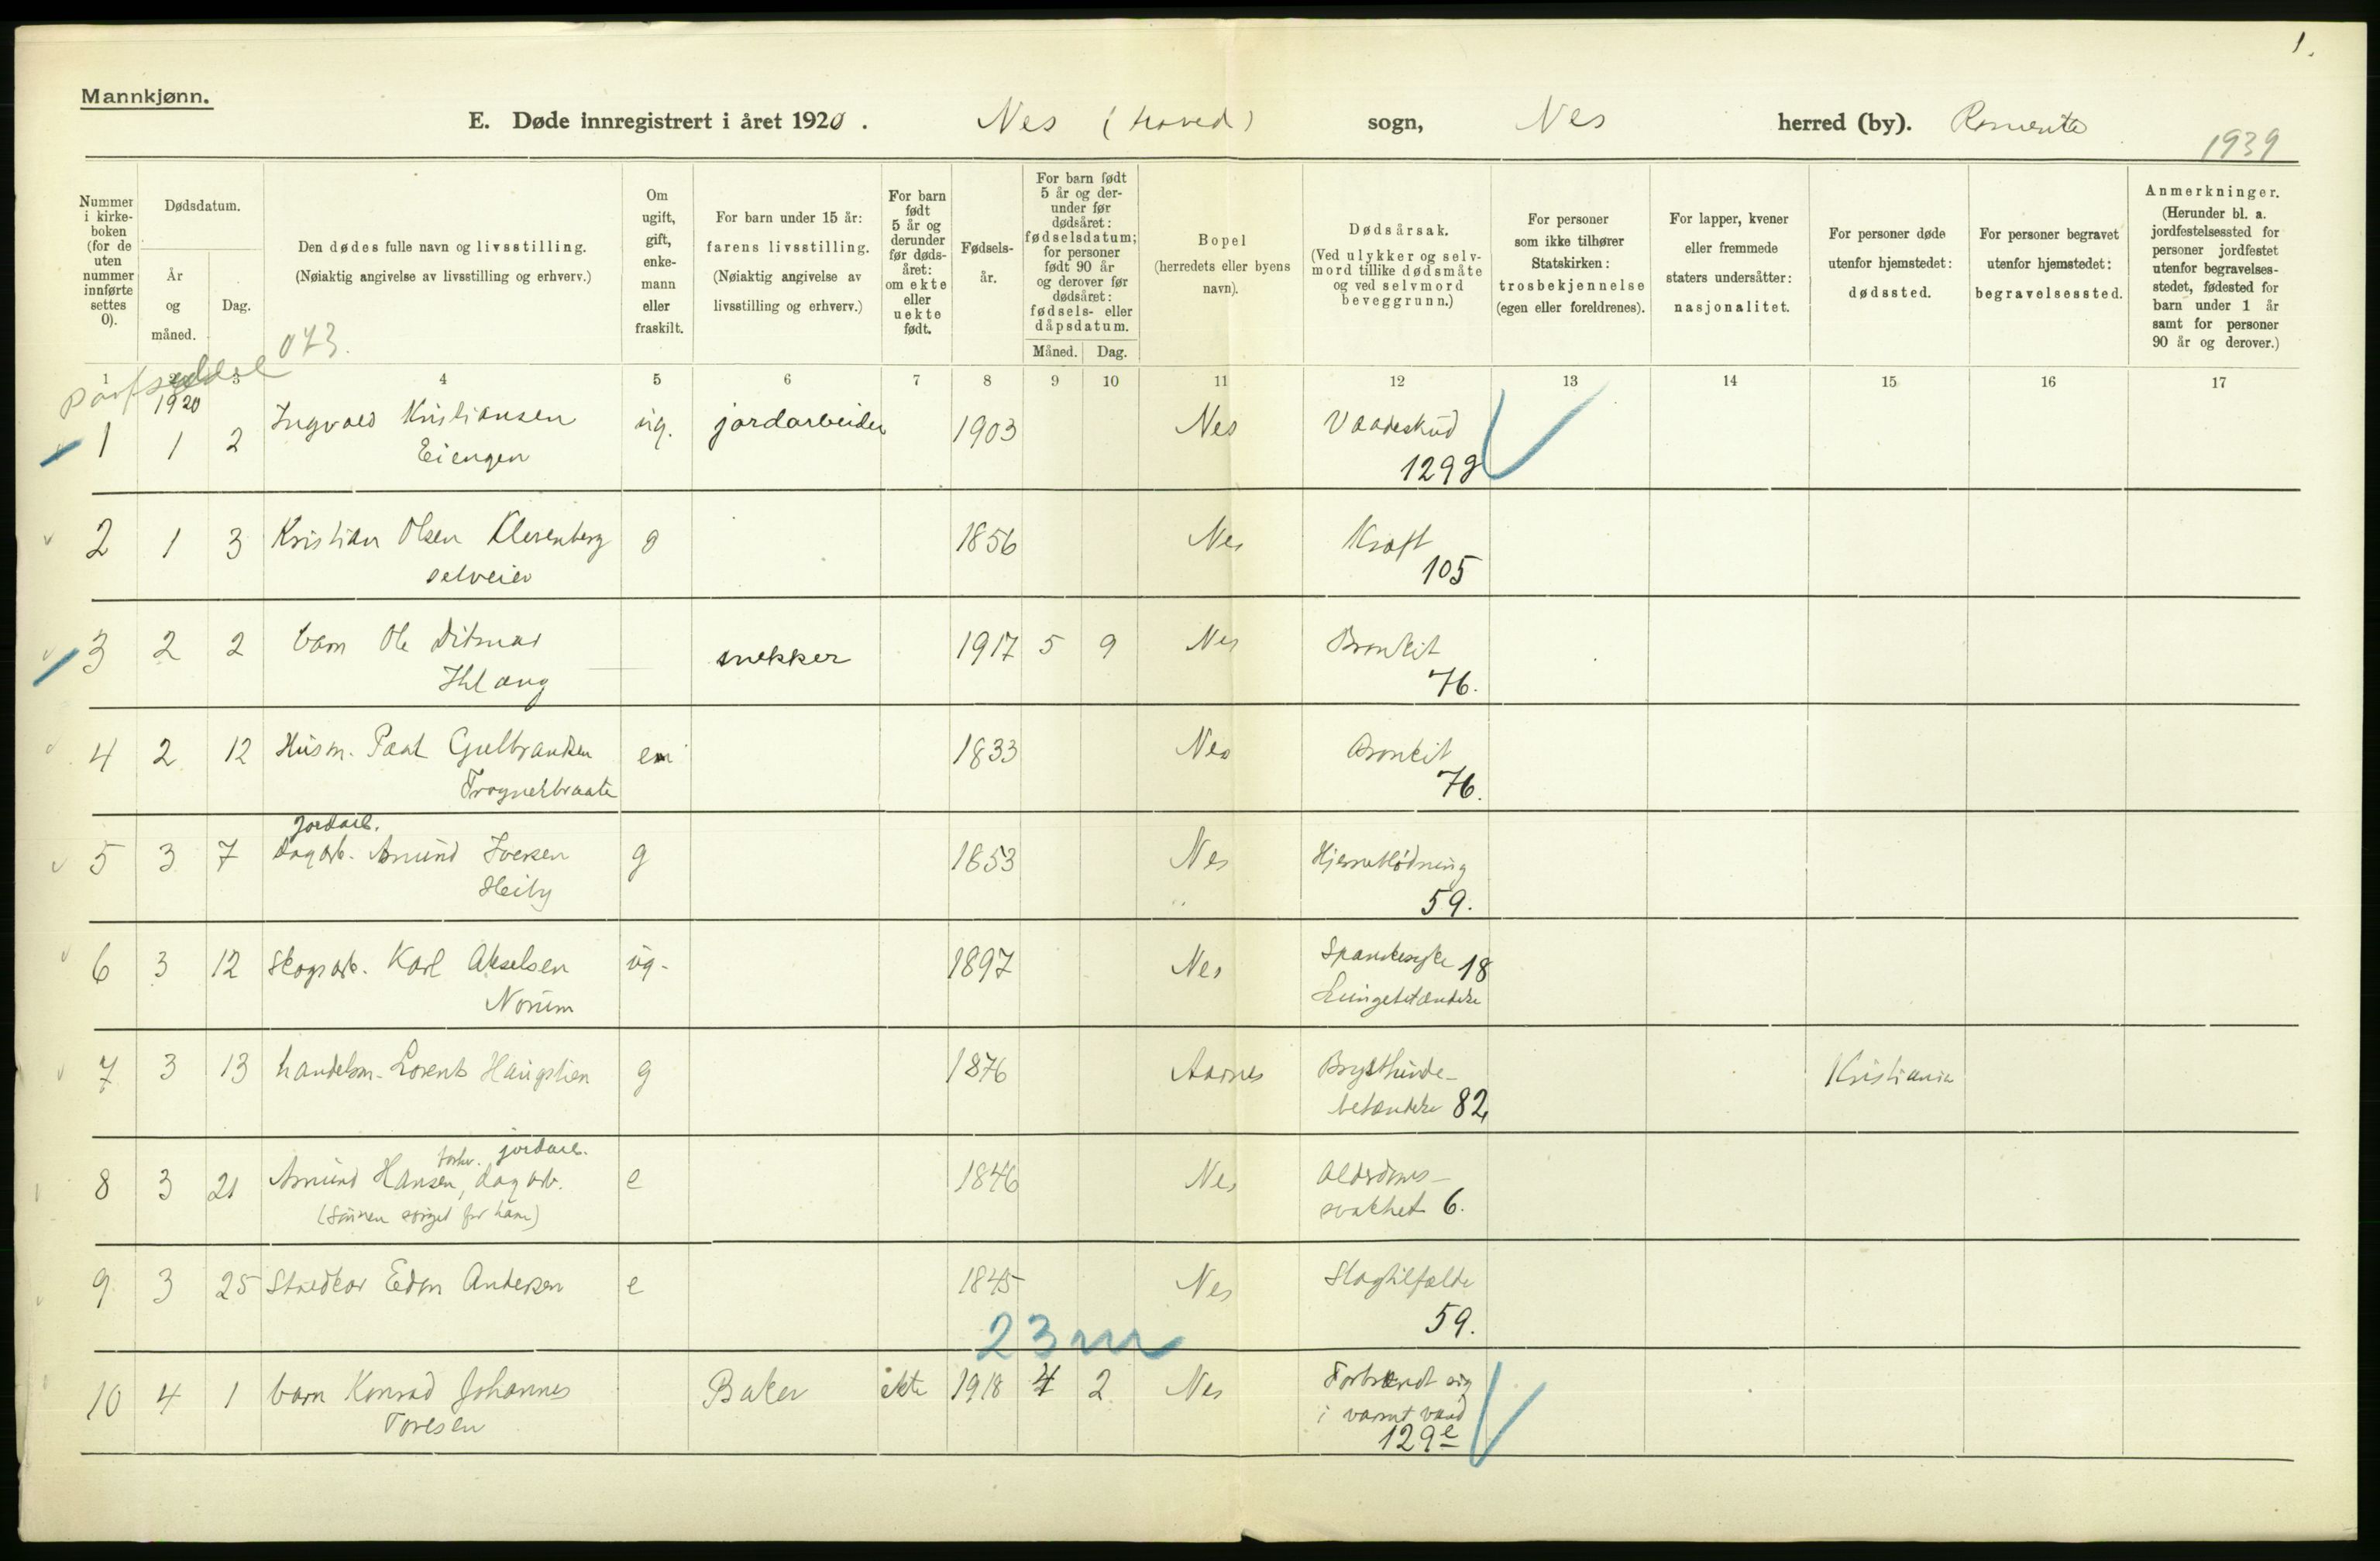 1.
Mannkjønn.
E. Døde innregistrert i året 1920. Nes (hoved) sogn, Nes herred (by). Romerike
1939
Nummer i kirke-boken (for de uten nummer innførte settes 0).
Dødsdatum.
År og måned.
Dag.
Den dødes fulle navn og livsstilling.
(Nøiaktig angivelse av livsstilling og erhverv.)
Om ugift, gift, enke-mann eller fraskilt.
For barn under 15 år: farens livsstilling. (Nøiaktig angivelse av livsstilling og erhverv.)
For barn født 5 år og derunder før døds-året: om ekte eller uekte født.
Fødsels-år.
For barn født 5 år og der-under før dødsåret: fødselsdatum; for personer født 90 år og derover før dødsåret: fødsels- eller dåpsdatum.
Måned. Dag.
Bopel (herredets eller byens navn).
Dødsårsak. (Ved ulykker og selv-mord tillike dødsmåte og ved selvmord beveggrunn.)
For personer som ikke tilhører Statskirken: trosbekjennelse (egen eller foreldrenes).
For lapper, kvener eller fremmede staters undersåtter: nasjonalitet.
For personer døde utenfor hjemstedet: dødssted.
For personer begravet utenfor hjemstedet: begravelsessted.
Anmerkninger. (Herunder bl. a. jordfestelsessted for personer jordfestet utenfor begravelses-stedet, fødested for barn under 1 år samt for personer 90 år og derover.)
073.
1 2 3 4 5 6 7 8 9 10 11 12 13 14 15 16 17
1920
1 1 2 Ingvald Kristiansen ug. jordarbeider 1903 Nes Vaadeskud
Eiengen 129g
2 1 3 Kristian Olsen Klevenberg g 1856 Nes Kræft
selveier 105
3 2 2 barn Ole Ditmar snekker 1917 5 9 Nes Bronkit
Ihlang 76.
4 2 12 Husm. Paal Gulbrandsen em 1833 Nes Bronkit
Trognerbraate 76.
jordarb.
5 3 7 dagarb. Amund Iversen g 1853 Nes Hjerneblødning
Heiby 59.
6 3 12 Skogsarb. Karl Akselsen ug. 1897 Nes Spanskesyke 18
Norum Lungebetændelse
7 3 13 handelsm. Lorents Haugstien g 1876 Aarnes Brysthinde- Kristiania
betændelse 82
forhv. jordarb.
8 3 21 Amund Hansen, dagarb. e 1846 Nes Alderdoms-
(Sønnen sørget for ham) svakhet 6.
9 3 25 Stuedkar Edm Andersen e 1845 Nes Slagtilfælde
59.
23 m
10 4 1 barn Konrad Johannes Baker ekte 1918 4 2 Nes Forbrændt sig
Toresen i varmt vand
129e